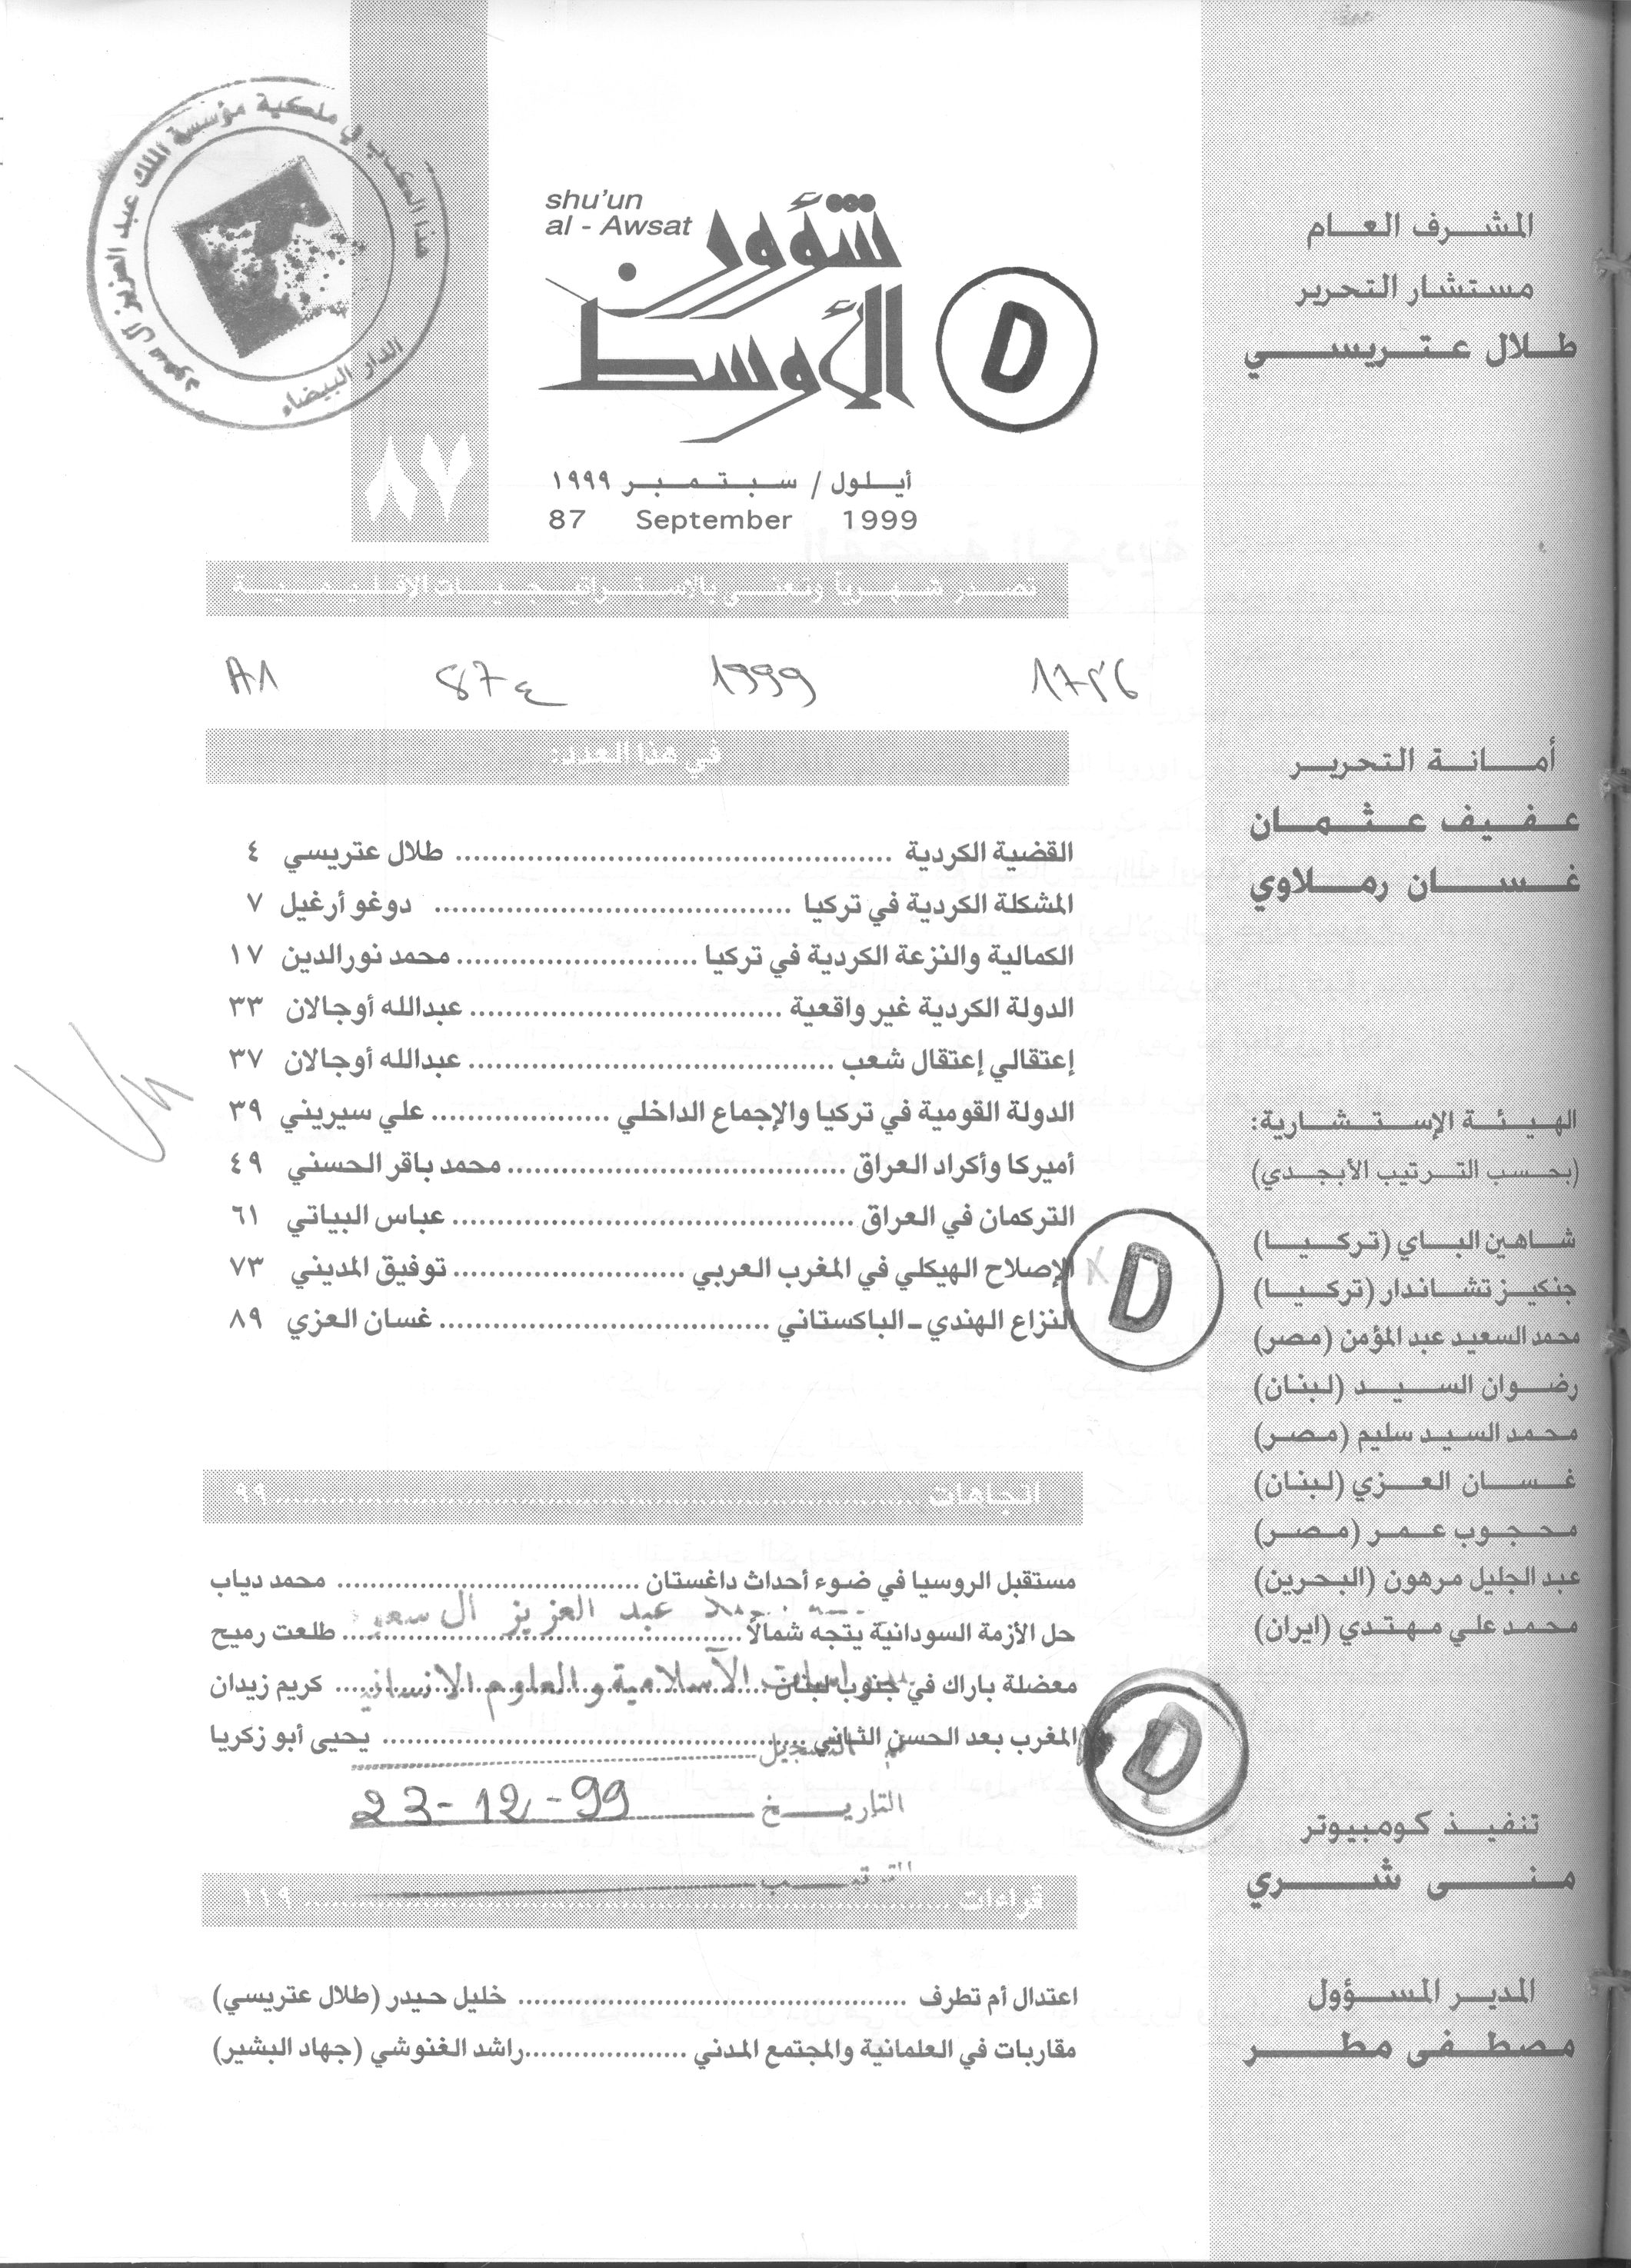 المشرف العام
مستشار التحرير
طلال عتريسي
أمانة التحرير
عفيف عثمان
غسان رملاوي
الهيئة الإستشارية:
(بحسب الترتيب الأبجدي)
شاهين الباي (تركيا)
جنكيز تشاندار (تركيا)
محمد السعيد عبد المؤمن (مصر)
رضوان السيد (لبنان)
محمد السيد سليم (مصر)
غسان العزي (لبنان)
محجوب عمر (مصر)
عبد الجليل مرهون (البحرين)
محمد علي مهتدي (ايران)
تنفيذ كومبيوتر
منى شري
المدير المسؤول
مصطفى مطر
هذا الكتاب في ملكية مؤسسة الملك عبد العزيز آل سعود
الدار البيضاء
shu'un
al - Awsat
شؤون
الأوسط
D
٨٧
أيلول / سبتمبر ١٩٩٩
87 September 1999
تصدر شهرياً وتعنى بالاستراتيجيات الإقليمية
A1 87ع 1999
في هذا العدد:
القضية الكردية ........ طلال عتريسي ٤
المشكلة الكردية في تركيا ........ دوغو أرغيل ٧
الكمالية والنزعة الكردية في تركيا ........ محمد نورالدين ١٧
الدولة الكردية غير واقعية ........ عبدالله أوجالان ٣٣
إعتقالي إعتقال شعب ........ عبدالله أوجالان ٣٧
الدولة القومية في تركيا والإجماع الداخلي ........ علي سيريني ٣٩
أميركا وأكراد العراق ........ محمد باقر الحسني ٤٩
التركمان في العراق ........ عباس البياتي ٦١
الإصلاح الهيكلي في المغرب العربي ........ توفيق المديني ٧٣
النزاع الهندي ـ الباكستاني ........ غسان العزي ٨٩
D
اتجاهات ........ ٩٩
مستقبل الروسيا في ضوء أحداث داغستان ........ محمد دياب
عبد العزيز آل سعود
حل الأزمة السودانية يتجه شمالاً ........ طلعت رميح
الاسلامية والعلوم الانسانية
معضلة باراك في جنوب لبنان ........ كريم زيدان
المغرب بعد الحسن الثاني ........ يحيى أبو زكريا
التسجيل
D
التاريخ 23-12-99
قراءات ........ ١١٩
اعتدال أم تطرف ........ خليل حيدر (طلال عتريسي)
مقاربات في العلمانية والمجتمع المدني ........ راشد الغنوشي (جهاد البشير)